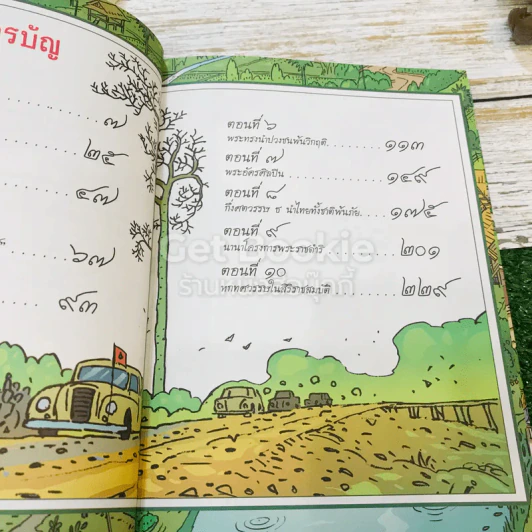 รบัญ
๗
๒๕
๔๗
๖๗
๙๓
ตอนที่ ๖
พระทรงนำปวงชนพ้นวิกฤติ ๑๑๓
ตอนที่ ๗
พระอัครศิลปิน ๑๔๙
ตอนที่ ๘
กึ่งศตวรรษ ธ นำไทยทั้งชาติพ้นภัย ๑๗๕
ตอนที่ ๙
นานาโครงการพระราชดำริ ๒๐๑
ตอนที่ ๑๐
หกทศวรรษในสิริราชสมบัติ ๒๒๙
Get Bookie